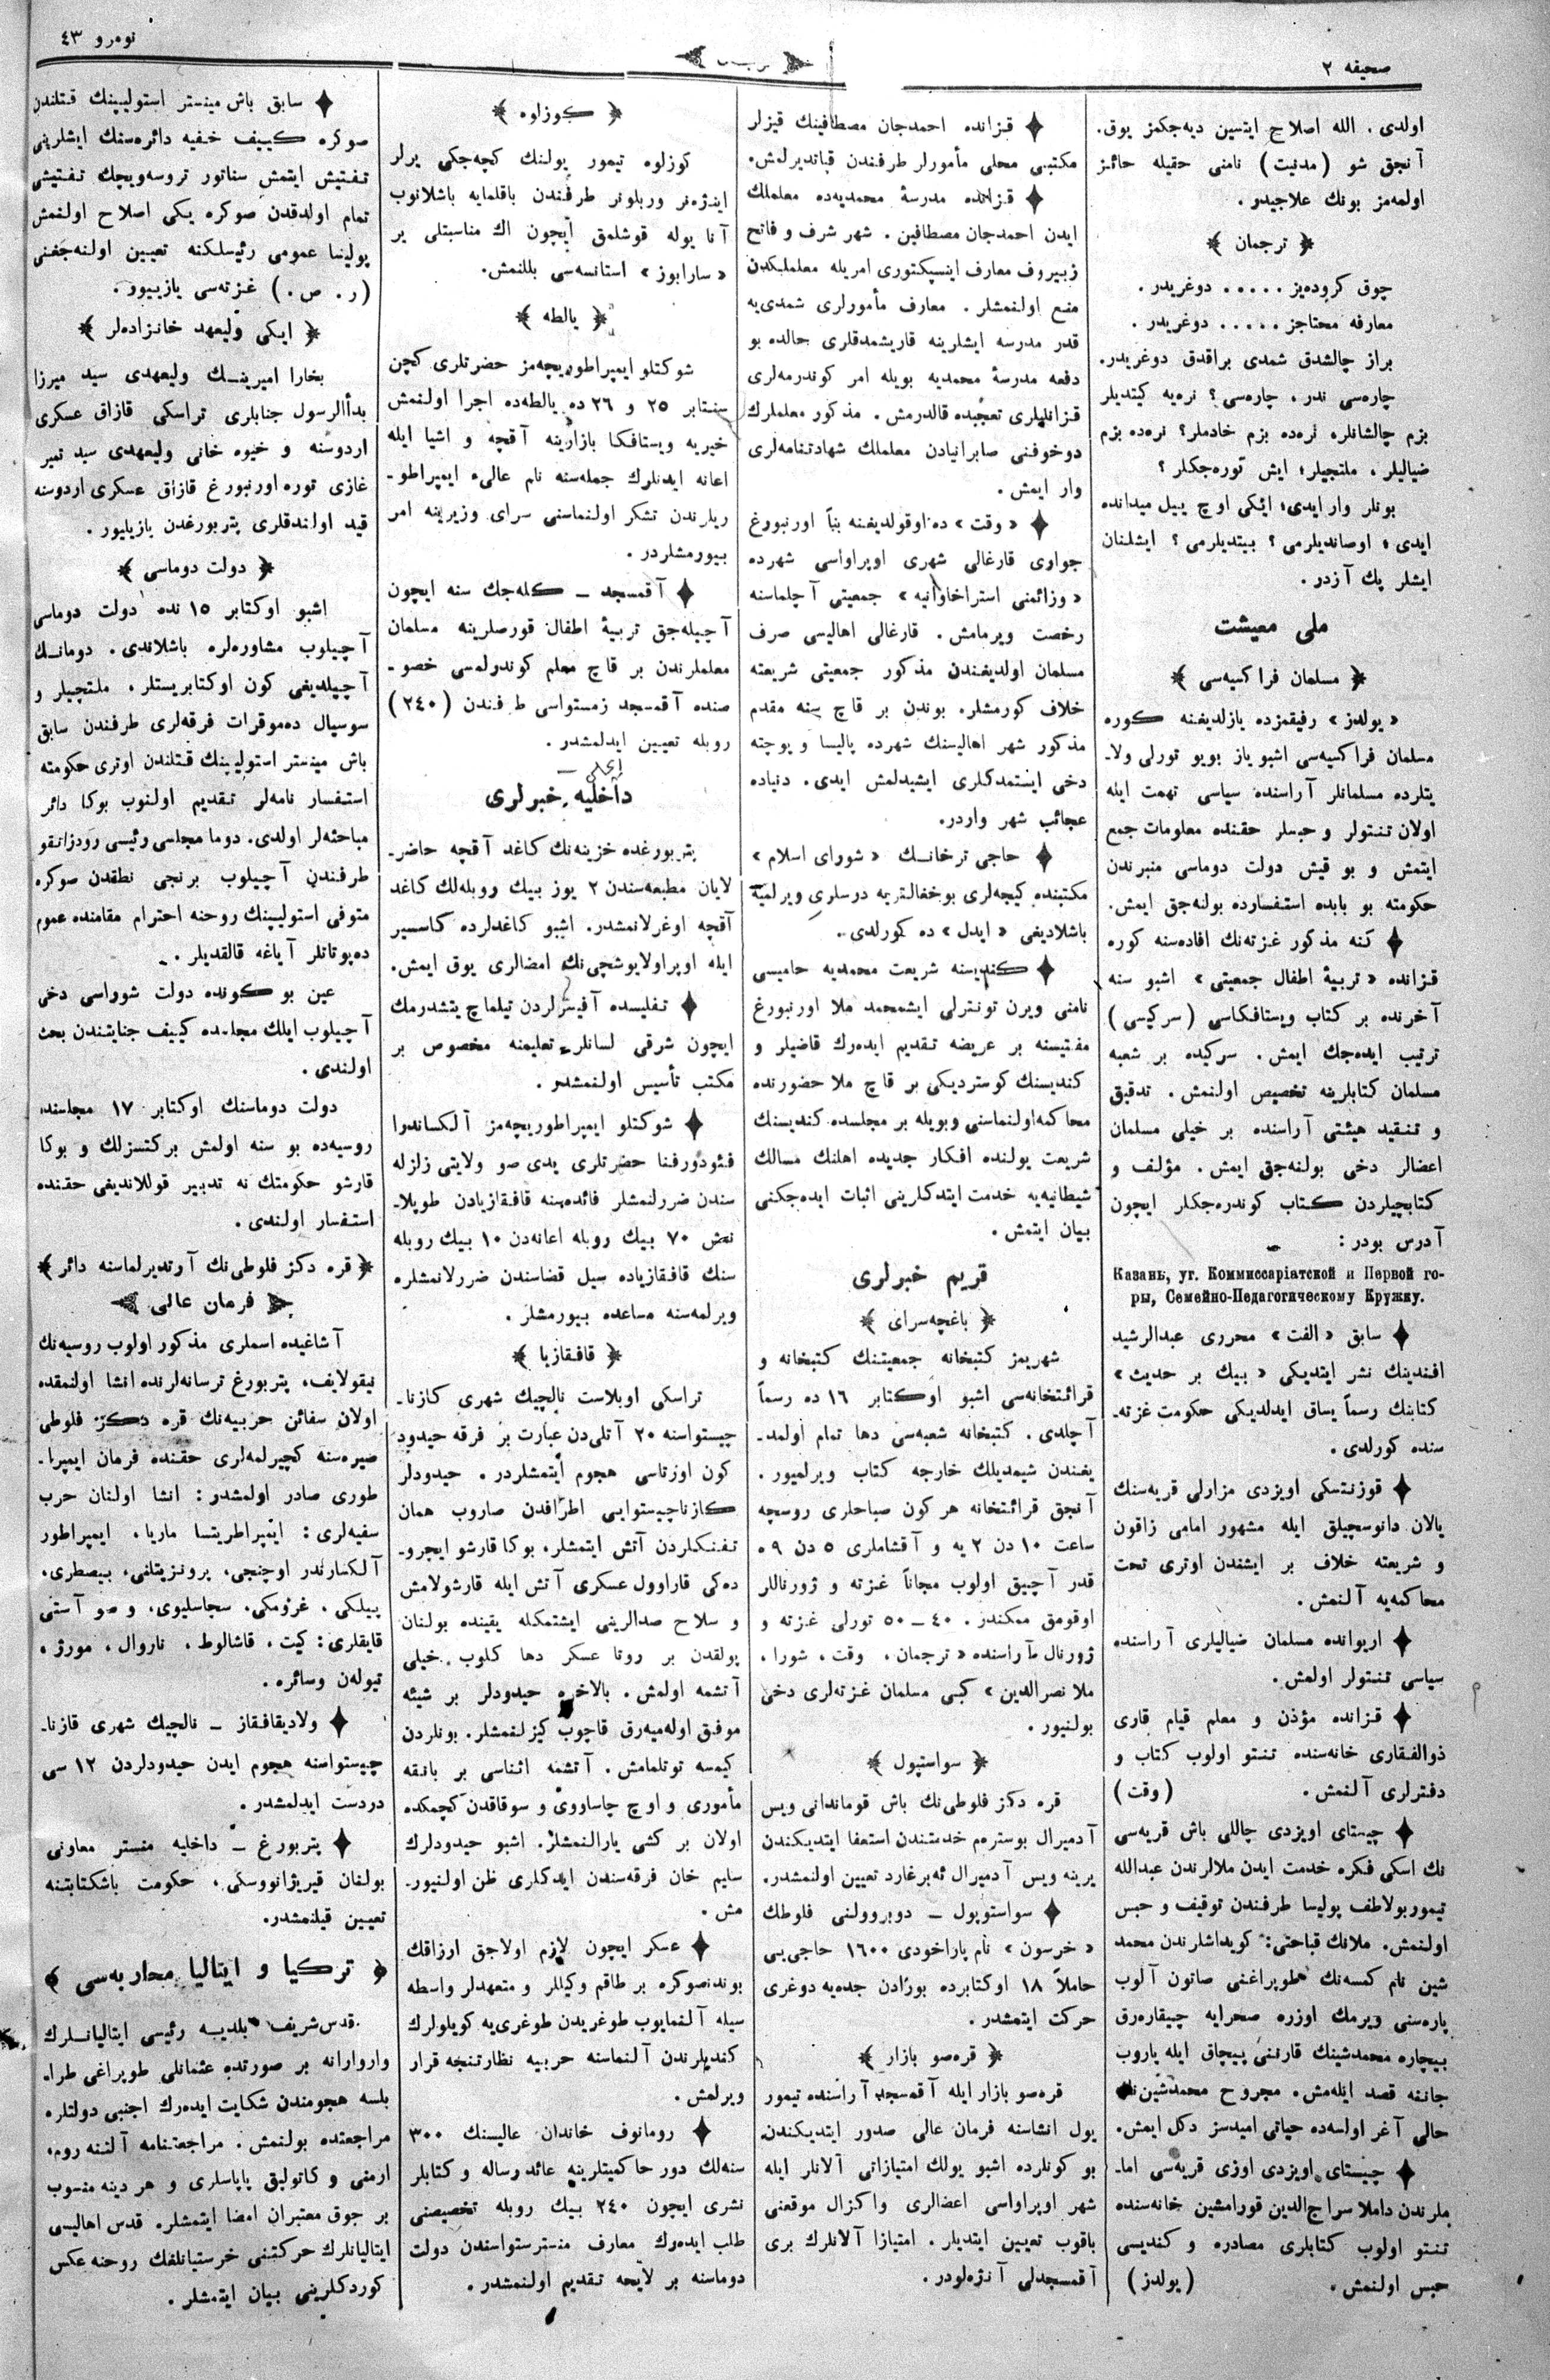 صحیفه ٢
ترجمان
نومرو ٤٣
اولدی. الله اصلاح ایتسین دیه‌جکمز یوق.
آنجق شو (مدنیت) نامنی حقیله حائز
اولمه‌مز بونك علاجیدر.
﴿ ترجمان ﴾
چوق کروده‌یز ..... دوغریدر.
معارفه محتاجز ..... دوغریدر.
براز چالشدق شمدی براقدق دوغریدر.
چاره‌سی ندر، چاره‌سی؟ نره‌یه کیتدیلر
بزم چالشانلر، نره‌ده بزم خادملر؟ نره‌ده بزم
ضیالیلر، ملتجیلر؛ ایش توره‌جکلر؟
بونلر وار ایدی؛ ایکی اوچ ییل میدانده
ایدی؛ اوصاندیلرمی؟ بیتدیلرمی؟ ایشلنان
ایشلر پك آزدر.
ملی معیشت
﴿ مسلمان فراکسیه‌سی ﴾
«یولدز» رفیقمزده یازلدیغنه کوره
مسلمان فراکسیه‌سی اشبو یاز بویو تورلی ولا-
یتلرده مسلمانلر آراسنده سیاسی تهمت ایله
اولان تنتولر و حبسلر حقنده معلومات جمع
ایتمش و بو قیش دولت دوماسی منبرندن
حکومته بو بابده استفسارده بولنه‌جق ایمش.
کنه مذکور غزته‌نك افاده‌سنه کوره
قزانده «تربیهٔ اطفال جمعیتی» اشبو سنه
آخرنده بر کتاب ویستافکاسی (سرکیسی)
ترتیب ایده‌جك ایمش. سرکیده بر شعبه
مسلمان کتابلرینه تخصیص اولنمش. تدقیق
و تنقید هیئتی آراسنده بر خیلی مسلمان
اعضالر دخی بولنه‌جق ایمش. مؤلف و
کتابچیلردن کتاب کوندره‌جکلر ایچون
آدرس بودر:
Казань, уг. Коммиссаріатской и Первой го-
ры, Семейно-Педагогическому Кружку.
سابق «الفت» محرری عبدالرشید
افندینك نشر ایتدیکی «بیك بر حدیث»
کتابنك رسماً یساق ایدلدیکی حکومت غزته-
سنده کورلدی.
قوزنتسکی اویزدی مزارلی قریه‌سنك
یالان دانوسچیلق ایله مشهور امامی زاقون
و شریعته خلاف بر ایشندن اوتری تحت
محاکمه‌یه آلنمش.
اریوانده مسلمان ضیالیلری آراسنده
سیاسی تنتولر اولمش.
قزانده مؤذن و معلم قیام قاری
ذوالفقاری خانه‌سنده تنتو اولوب کتاب و
دفترلری آلنمش. (وقت)
چیستای اویزدی چاللی باش قریه‌سی
نك اسکی فکره خدمت ایدن ملالرندن عبدالله
تیموربولاطف پولیسا طرفندن توقیف و حبس
اولنمش. ملانك قباحتی: کویداشلرندن محمد
شین نام کمسه‌نك طوپراغنی صاتون آلوب
پاره‌سنی ویرمك اوزره صحرایه چیقاره‌رق
بیچاره محمدشینك قارننی پیچاق ایله یاروب
جاننه قصد ایله‌مش. مجروح محمدشین نك
حالی آغر اولسه‌ده حیاتی امیدسز دکل ایمش.
چیستای اویزدی اوزی قریه‌سی اما-
ملرندن داملا سراج‌الدین قورامشین خانه‌سنده
تنتو اولوب کتابلری مصادره و کندیسی
حبس اولنمش. (یولدز)
قزانده احمدجان مصطافینك قیزلر
مکتبی محلی مأمورلر طرفندن قپاتدیرلمش.
قزانده مدرسهٔ محمدیه‌ده معلملك
ایدن احمدجان مصطافین، شهر شرف و فاتح
زبیروف معارف اینسپکتوری امریله معلملکدن
منع اولنمشلر. معارف مأمورلری شمدی‌یه
قدر مدرسه ایشلرینه قاریشمدقلری حالده بو
دفعه مدرسهٔ محمدیه بویله امر کوندرمه‌لری
قزانلیلری تعجبده قالدرمش. مذکور معلملرك
دوخوفنی صابرانیادن معلملك شهادتنامه‌لری
وار ایمش.
«وقت» ده اوقولدیغنه بنأ اورنبورغ
جواری قارغالی شهری اوپراواسی شهرده
«وزائمنی استراخاوانیه» جمعیتی آچلماسنه
رخصت ویرمامش. قارغالی اهالیسی صرف
مسلمان اولدیغندن مذکور جمعیتی شریعته
خلاف کورمشلر. بوندن بر قاچ سنه مقدم
مذکور شهر اهالیسنك شهرده پالیسا و پوچته
دخی ایستمدکلری ایشیدلمش ایدی. دنیاده
عجائب شهر واردر.
حاجی ترخانك «شورای اسلام»
مکتبنده کیچه‌لری بوخفالتریه درسلری ویرلمیه
باشلادیغی «ایدل» ده کورلدی.
کندیسنه شریعت محمدیه حامیسی
نامنی ویرن تونترلی ایشمحمد ملا اورنبورغ
مفتیسنه بر عریضه تقدیم ایده‌رك قاضیلر و
کندیسنك کوستردیکی بر قاچ ملا حضورنده
محاکمه اولنماسنی وبویله بر مجلسده کندیسنك
شریعت یولنده افکار جدیده اهلنك مسالك
شیطانیه‌یه خدمت ایتدکلرینی اثبات ایده‌جکنی
بیان ایتمش.
قریم خبرلری
﴿ باغچه‌سرای ﴾
شهریمز کتبخانه جمعیتنك کتبخانه و
قرائتخانه‌سی اشبو اوکتابر ١٦ ده رسماً
آچلدی. کتبخانه شعبه‌سی دها تمام اولمد-
یغندن شیمدیلك خارجه کتاب ویرلمیور.
آنجق قرائتخانه هر کون صباحلری روسچه
ساعت ١٠ دن ٢ یه و آقشاملری ٥ دن ٩ ه
قدر آچیق اولوب مجاناً غزته و ژورناللر
اوقومق ممکندر. ٤٠—٥٠ تورلی غزته و
ژورنال آراسنده «ترجمان، وقت، شورا،
ملا نصرالدین» کبی مسلمان غزته‌لری دخی
بولنیور.
﴿ سواستپول ﴾
قره دکز فلوطی‌نك باش قوماندانی ویس
آدمیرال بوسترم خدمتندن استعفا ایتدیکندن
یرینه ویس آدمیرال ئه‌برغارد تعیین اولنمشدر.
سواستوپول — دوبروولنی فلوطك
«خرسون» نام پاراخودی ١٦٠٠ حاجی‌یی
حاملاً ١٨ اوکتابرده بورادن جده‌یه دوغری
حرکت ایتمشدر.
﴿ قره‌صو بازار ﴾
قره‌صو بازار ایله آقمسجد آراسنده تیمور
یول انشاسنه فرمان عالی صدور ایتدیکندن
بو کونلرده اشبو یولك امتیازاتی آلانلر ایله
شهر اوپراواسی اعضالری واکزال موقعنی
باقوب تعیین ایتدیلر. امتیازا آلانلرك بری
آقمسجدلی آنژه‌لودر.
﴿ کوزلوه ﴾
کوزلوه تیمور یولنك کچه‌جکی یرلر
اینژه‌نر وربلونر طرفندن باقلمایه باشلانوب
آنا یوله قوشلمق ایچون اك مناسبتلی یر
«سارابوز» استانسه‌سی بللنمش.
﴿ یالطه ﴾
شوکتلو ایمپراطوریچه‌مز حضرتلری کچن
سنتابر ٢٥ و ٢٦ ده یالطه‌ده اجرا اولنمش
خیریه ویستافکا بازارینه آقچه و اشیا ایله
اعانه ایدنلرك جمله‌سنه نام عالیء ایمپراطو-
ریلرندن تشکر اولنماسنی سرای وزیرینه امر
بیورمشلردر.
آقمسجد — کله‌جك سنه ایچون
آچیله‌جق تربیهٔ اطفال قورصلرینه مسلمان
معلملرندن بر قاچ معلم کوندرلمسی خصو-
صنده آقمسجد زمستواسی طرفندن (٢٤٠)
روبله تعیین ایدلمشدر.
داخلیه خبرلری
پتربورغده خزینه‌نك کاغد آقچه حاضر-
لایان مطبعه‌سندن ٢ یوز بیك روبله‌لك کاغد
آقچه اوغرلانمشدر. اشبو کاغدلرده کاسسیر
ایله اوپراولایوشچی‌نك امضالری یوق ایمش.
تفلیسده آفیسرلردن تیلماچ یتشدرمك
ایچون شرقی لسانلر تعلیمنه مخصوص بر
مکتب تأسیس اولنمشدر.
شوکتلو ایمپراطوریچه‌مز آلکساندرا
فئودورفنا حضرتلری یدی صو ولایتی زلزله
سندن ضررلنمشلر فائده‌سنه قافقازیادن طوپلا-
نمش ٧٠ بیك روبله اعانه‌دن ١٠ بیك روبله
سنك قافقازیاده سیل قضاسندن ضررلانمشلره
ویرلمه‌سنه مساعده بیورمشلر.
﴿ قافقازیا ﴾
تراسکی اوبلاست نالچیك شهری کازنا-
چیستواسنه ٢٠ آتلی‌دن عبارت بر فرقه حیدود
کون اوزتاسی هجوم ایتمشلردر. حیدودلر
کازناچیستوایی اطرافدن صاروب همان
تفنکلردن آتش ایتمشلر، بوکا قارشو ایچرو-
ده‌کی قاراوول عسکری آتش ایله قارشولامش
و سلاح صدالرینی ایشتمکله یقینده بولنان
پولقدن بر روتا عسکر دها کلوب خیلی
آتشمه اولمش. بالاخره حیدودلر بر شیئه
موفق اوله‌میه‌رق قاچوب کیزلنمشلر. بونلردن
کیمسه توتلمامش. آتشمه اثناسی بر بانقه
مأموری و اوچ چاساووی و سوقاقدن کچمکده
اولان بر کشی یارالنمشلر. اشبو حیدودلرك
سلیم خان فرقه‌سندن ایدکلری ظن اولنیور-
مش.
عسکر ایچون لازم اولاجق ارزاقك
بوندنصوکره بر طاقم وکیللر و متعهدلر واسطه
سیله آلنمایوب طوغریدن طوغری‌یه کویلولرك
کندیلرندن آلنماسنه حربیه نظارتنجه قرار
ویرلمش.
رومانوف خاندان عالیسنك ٣٠٠
سنه‌لك دور حاکمیتلرینه عائد رساله و کتابلر
نشری ایچون ٢٤٠ بیك روبله تخصیصنی
طلب ایده‌رك معارف منسترستواسندن دولت
دوماسنه بر لایحه تقدیم اولنمشدر.
سابق باش مینستر استولیپنك قتلندن
صوکره کییف خفیه دائره‌سنك ایشلرینی
تفتیش ایتمش سناتور تروسه‌ویچك تفتیشی
تمام اولدقدن صوکره یکی اصلاح اولنمش
پولیسا عمومی رئیسلکنه تعیین اولنه‌جغنی
(ر. ص.) غزته‌سی یازییور.
﴿ ایکی ولیعهد خانزاده‌لر ﴾
بخارا امیرینك ولیعهدی سید میرزا
بدأالرسول جنابلری تراسکی قازاق عسکری
اردوسنه و خیوه خانی ولیعهدی سید تمیر
غازی توره اورنبورغ قازاق عسکری اردوسنه
قید اولندقلری پتربورغدن یازیلیور.
﴿ دولت دوماسی ﴾
اشبو اوکتابر ١٥ نده دولت دوماسی
آچیلوب مشاوره‌لره باشلاندی. دومانك
آچیلدیغی کون اوکتابریستلر، ملتچیلر و
سوسیال ده‌موقرات فرقه‌لری طرفندن سابق
باش مینستر استولیپنك قتلندن اوتری حکومته
استفسار نامه‌لر تقدیم اولنوب بوکا دائر
مباحثه‌لر اولدی. دوما مجلسی رئیسی رودزانقو
طرفندن آچیلوب برنجی نطقدن صوکره
متوفی استولیپنك روحنه احترام مقامنده عموم
ده‌پوتاتلر آیاغه قالقدیلر.
عین بو کونده دولت شوراسی دخی
آچیلوب ایلك مجلسده کییف جنایتندن بحث
اولندی.
دولت دوماسنك اوکتابر ١٧ مجلسنده
روسیه‌ده بو سنه اولمش برکتسزلك و بوکا
قارشو حکومتك نه تدبیر قوللاندیغی حقنده
استفسار اولندی.
﴿ قره دکز فلوطی‌نك آرتدیرلماسنه دائر ﴾
فرمان عالی
آشاغیده اسملری مذکور اولوب روسیه‌نك
نیقولایف، پتربورغ ترسانه‌لرنده انشا اولنمقده
اولان سفائن حربیه‌نك قره دکز فلوطی
صیره‌سنه کچیرلمه‌لری حقنده فرمان ایمپرا-
طوری صادر اولمشدر: انشا اولنان حرب
سفیه‌لری: ایمپراطریتسا ماریا، ایمپراطور
آلکساندر اوچنجی، پرونزیتلنی، بیصطری،
پیلکی، غرومکی، سچاسلیوی، و صو آستی
قایقلری: کیت، قاشالوط، ناروال، مورژ،
تیولەن وسائره.
ولادیقافقاز — نالچیك شهری قازنا-
چیستواسنه هجوم ایدن حیدودلردن ١٢ سی
دردست ایدلمشدر.
پتربورغ — داخلیه منستر معاونی
بولنان قیریژانووسکی، حکومت باشکتابتنه
تعیین قیلنمشدر.
﴿ ترکیا و ایتالیا محاربه‌سی ﴾
قدس شریف بلدیه رئیسی ایتالیانلرك
واروارانه بر صورتده عثمانلی طوپراغی طرا-
بلسه هجومندن شکایت ایده‌رك اجنبی دولتلره
مراجعتده بولنمش. مراجعتنامه آلتنه روم،
ارمنی و کاتولیق پاپاسلری و هر دینه منسوب
بر چوق معتبران امضا ایتمشلر. قدس اهالیسی
ایتالیانلرك حرکتنی خرستیانلغك روحنه عکس
کوردکلرینی بیان ایتمشلر.